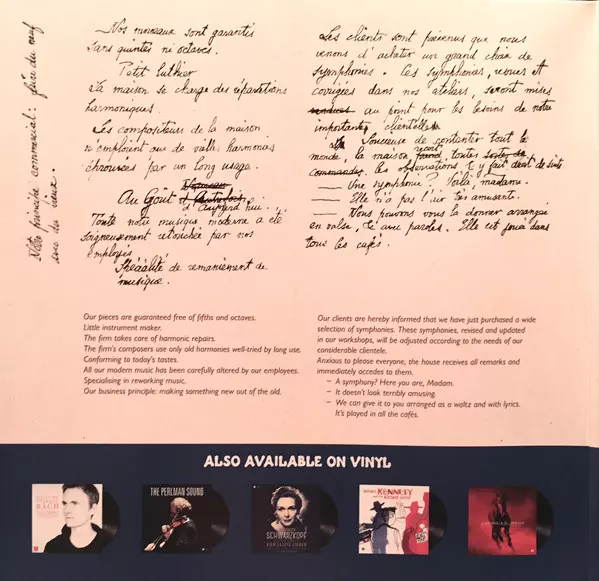 Notre principe commercial: faire du neuf
avec du vieux.
Nos morceaux sont garantis
sans quintes ni octaves.
Petit luthier
La maison se charge des réparations
harmoniques.
Les compositeurs de la maison
n'emploient que de vieilles harmonies
éprouvées par un long usage.
Au Goût
d'Aujourd'hui
Toute notre musique moderne a été
soigneusement retouchée par nos
employés
Spécialité de remaniement de
musique.
Les clients sont prévenus que nous
venons d'acheter un grand choix de
symphonies. Ces symphonies, revues et
corrigées dans nos ateliers, seront mises
vendues au point pour les besoins de notre
importante clientelle
Soucieuse de contenter tout le
monde, la maison reçoit toutes
les observations et y fait droit de suite
— Une symphonie? Voilà, madame.
— Elle n'a pas l'air très amusante.
— Nous pouvons vous la donner arrangée
en valse, et avec paroles. Elle est jouée dans
tous les cafés.
Our pieces are guaranteed free of fifths and octaves.
Little instrument maker.
The firm takes care of harmonic repairs.
The firm's composers use only old harmonies well-tried by long use.
Conforming to today's tastes.
All our modern music has been carefully altered by our employees.
Specialising in reworking music.
Our business principle: making something new out of the old.
Our clients are hereby informed that we have just purchased a wide
selection of symphonies. These symphonies, revised and updated
in our workshops, will be adjusted according to the needs of our
considerable clientele.
Anxious to please everyone, the house receives all remarks and
immediately accedes to them.
– A symphony? Here you are, Madam.
– It doesn't look terribly amusing.
– We can give it to you arranged as a waltz and with lyrics.
It's played in all the cafés.
ALSO AVAILABLE ON VINYL
BACH
THE PERLMAN SOUND
SCHWARZKOPF
KENNEDY